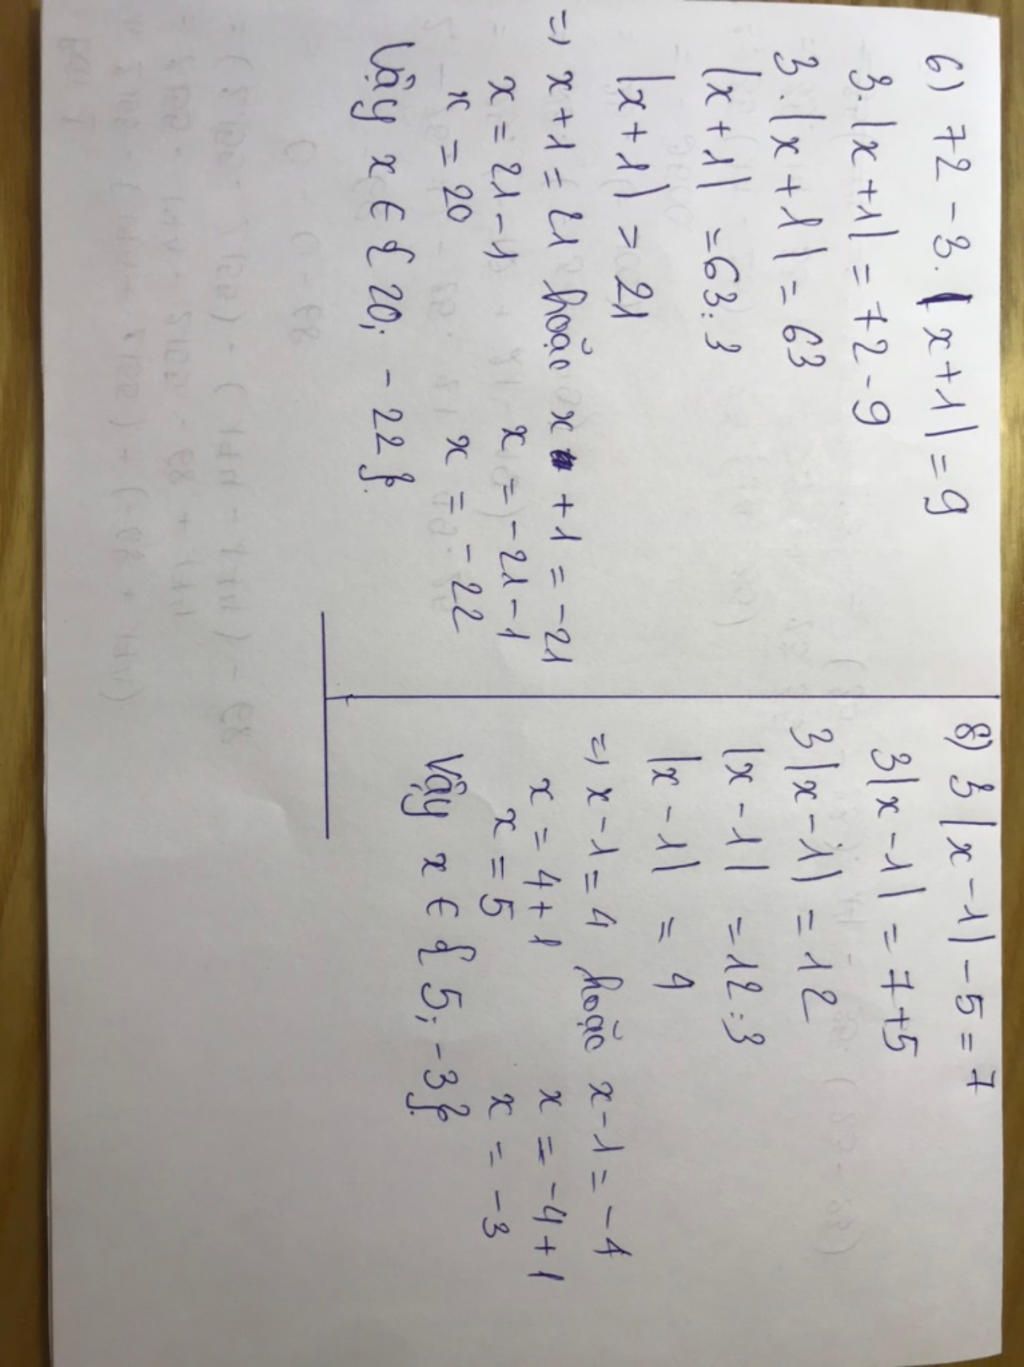 6) 72 - 3. |x+1| = 9
3. |x+1| = 72 - 9
3. |x+1| = 63
|x+1| = 63:3
|x+1| = 21
=> x+1 = 21 hoặc x + 1 = -21
x = 21 - 1 x = -21 - 1
x = 20 x = -22
Vậy x ∈ {20; -22}.
8) 3|x-1| - 5 = 7
3|x-1| = 7+5
3|x-1| = 12
|x-1| = 12:3
|x-1| = 4
=> x-1 = 4 hoặc x-1 = -4
x = 4+1 x = -4+1
x = 5 x = -3
Vậy x ∈ {5; -3}.